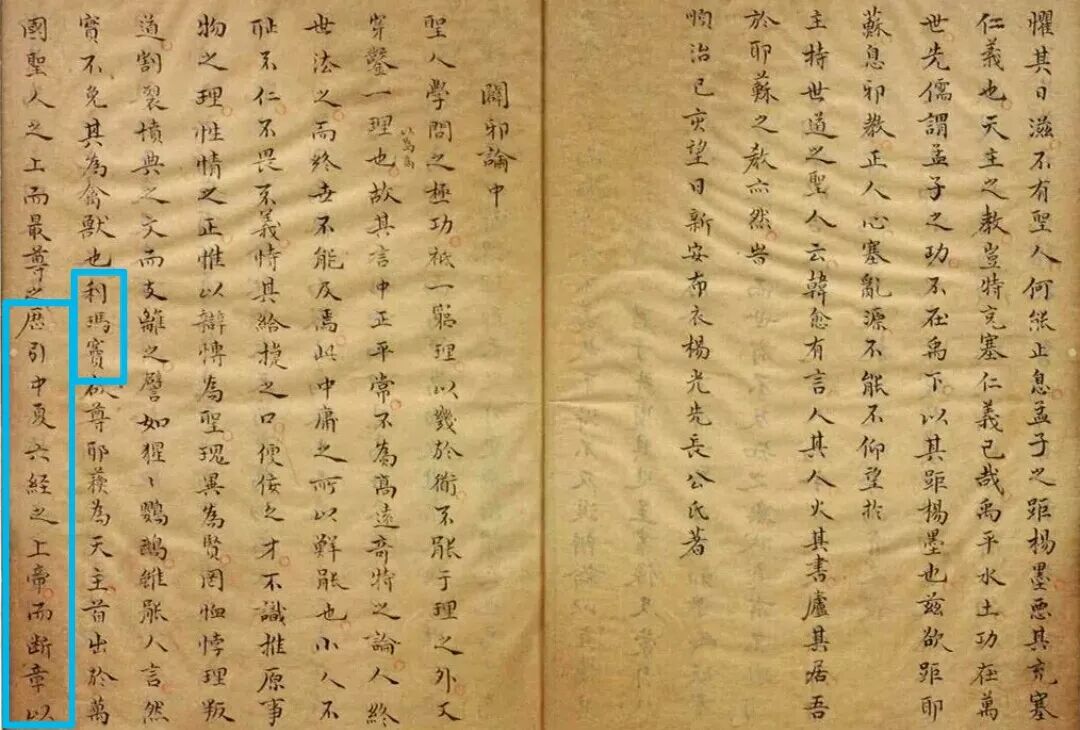 懼其日滋不有聖人何能止息孟子之距楊墨惡其充塞
仁義也天主之教豈特充塞仁義已哉禹平水土功在萬
世先儒謂孟子之功不在禹下以其距楊墨也茲欲距耶
蘇息邪教正人心塞亂源不能不仰望扵
主持世道之聖人云韓愈有言人其人火其書廬其居吾
於耶蘇之教亦然旹
順治己亥望日新安布衣楊光先長公氏著
闢邪論中
聖人學問之極功祇一窮理以幾於衜不能于理之外又
穿鑿一理
以為高
也故其言中正平常不為高遠奇特之論人終
世法之而終世不能及焉此中庸之所以鮮能也小人不
耻不仁不畏不義恃其給捷之口便佞之才不識推原事
物之理性情之正惟以辯愽為聖瑰異為賢罔恤悖理叛
道割裂墳典之文而支離之譬如猩〻鸚鵡雖能人言然
實不免其為禽獸也利瑪竇欲尊耶蘓為天主首出於萬
國聖人之上而最尊之歷引中夏六経之上帝而断章以